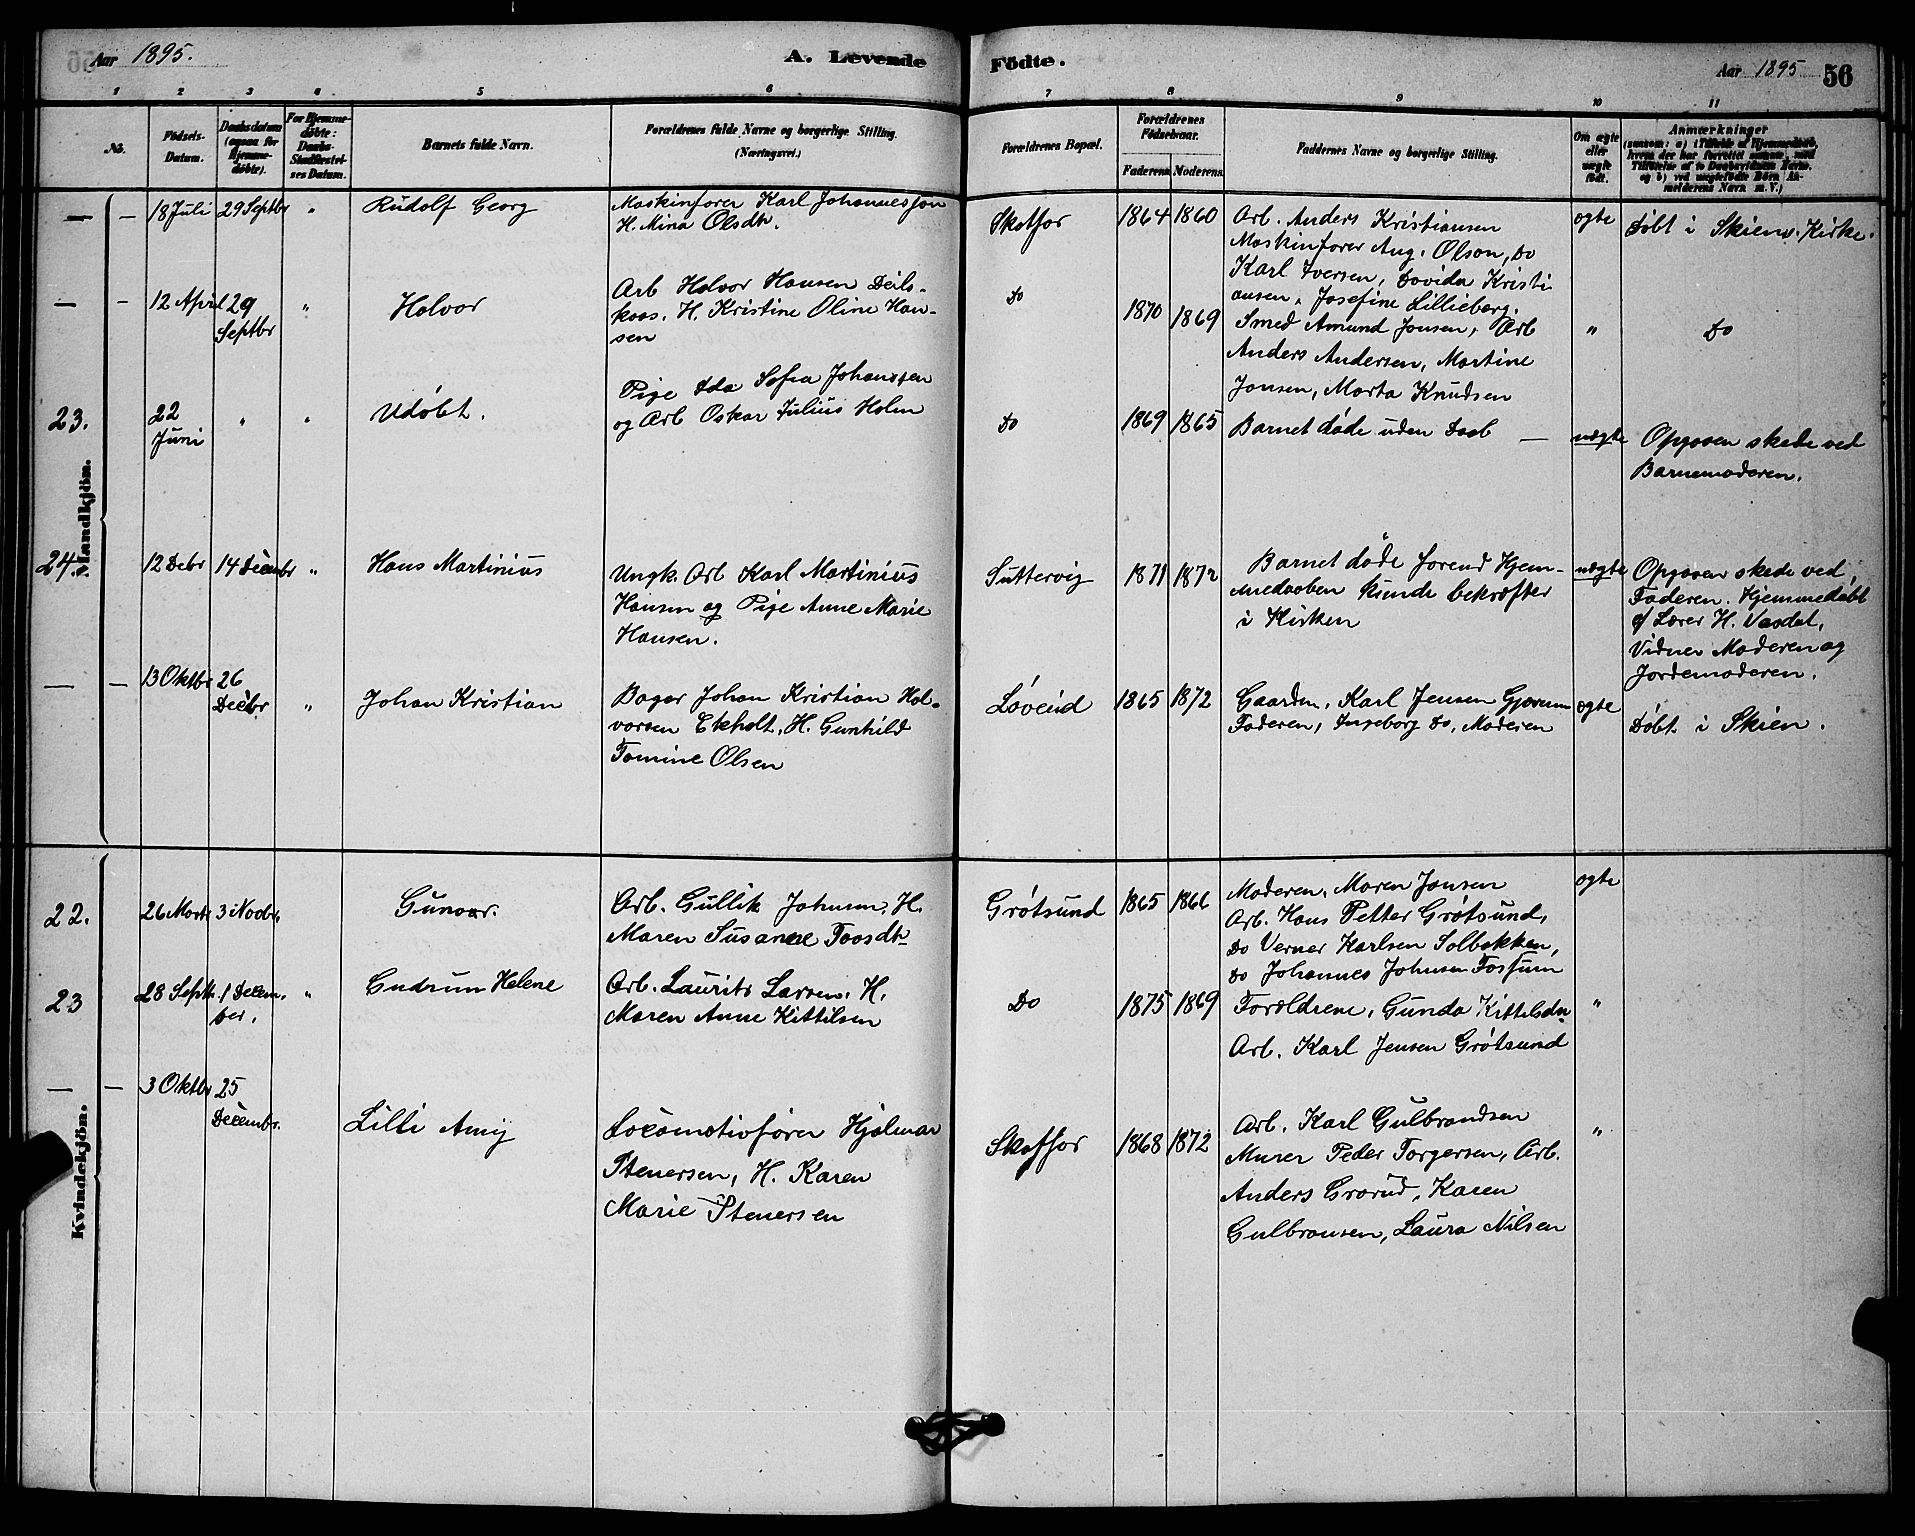 Aar 1895.
A. Levende
Födte.
Aar 1895
56
1 2 3 4 5 6 7 8 9 10 11
No.
Födsels-
Datum.
Daabsdatum
(ogsaa for
Hjemme-
döbte).
For Hjemme-
döbte:
Daabs-
Stadfæstel-
ses Datum.
Barnets fulde Navn.
Forældrenes fulde Navne og borgerlige Stilling.
(Næringsvei.)
Forældrenes Bopæl.
Forældrenes
Födselsaar.
Faderens.
Moderens.
Faddernes Navne og borgerlige Stilling.
Om ægte
eller
uægte
födt.
Anmærkninger
(saasom: a) i Tilfælde af Hjemmedaab,
hvem der har forrettet samme, med
Tilföielse af to Daabsvidners Navne,
og b) ved uægtefödte Börn An-
melderens Navn m. V.)
Mandkjön.
— — 18 Juli 29 Septbr "
Rudolf Georg
Maskinfører Karl Johannessen
H. Mina Olsdtr.
Skotfos
1864 1860
Arb. Anders Kristiansen
Maskinfører Aug. Olson, Do
Karl Iversen, Dovida Kristi
ansen, Josefine Lillieborg.
ægte
Døbt i Skiens Kirke.
— — 12 April 29
Septbr "
Halvor
Arb Halvor Hansen Deils-
kaas. H. Kristine Oline Han-
sen
Do
1870 1869
Smed Amund Jonsen, Arb
Anders Andersen, Martine
Jonsen, Marta Knudsen
"
Do
23. 22
Juni " "
Udøbt.
Pige Ida Sofia Johanssen
og Arb Oskar Julius Holm
Do
1869 1865
Barnet døde uden Daab —
uægte
Opgaven skede ved
Barnemoderen.
24. 12 Debr 14 Decembr "
Hans Martinius
Ungk. Arb Karl Martinius
Hansen og Pige Anne Marie
Hansen.
Suttervig
1871 1872
Barnet døde forend Hjem-
medaaben kunde bekræftes
i Kirken
uægte
Opgaven skede ved
Faderen. Hjemmedøbt
af Lærer H. Vasdal,
Vidner Moderen og
Jordemoderen.
— — 13 Oktbr 26
Decbr "
Johan Kristian
Bager Johan Kristian Hal-
vorsen Ekholt, H. Gunhild
Tomine Olsen
Løveid
1865 1872
Gaardm. Karl Jensen Gjerum
Faderen, Ingeborg Do, Moderen
ægte
Døbt i Skien.
Kvindekjön.
22. 26 Marts 3 Novbr.
Gunvor.
Arb. Gullik Johnsen, H.
Maren Susanne Toosdtr
Grøtsund
1865 1866
Moderen, Maren Jonsen
Arb. Hans Petter Grøtsund,
Do Verner Karlsen Solbakken,
Do Johannes Johnsen Fossum
ægte
23 28 Septbr. 1 Decem-
ber. "
Gudrun Helene
Arb. Laurits Larsen. H.
Maren Anne Kittilsen
Do
1875 1869
Forældrene, Gunda Kittelsdtr
Arb. Karl Jensen Grøtsund
"
— — 3 Oktbr 25
Decembr.
Lilli Amy
Locomotivfører Hjalmar
Stenersen, H. Karen
Marie Stenersen
Skotfos
1868 1872
Arb. Karl Gulbrandsen
Murer Peder Torgersen, Arb.
Anders Grorud, Karen
Gulbransen, Laura Nilsen
"